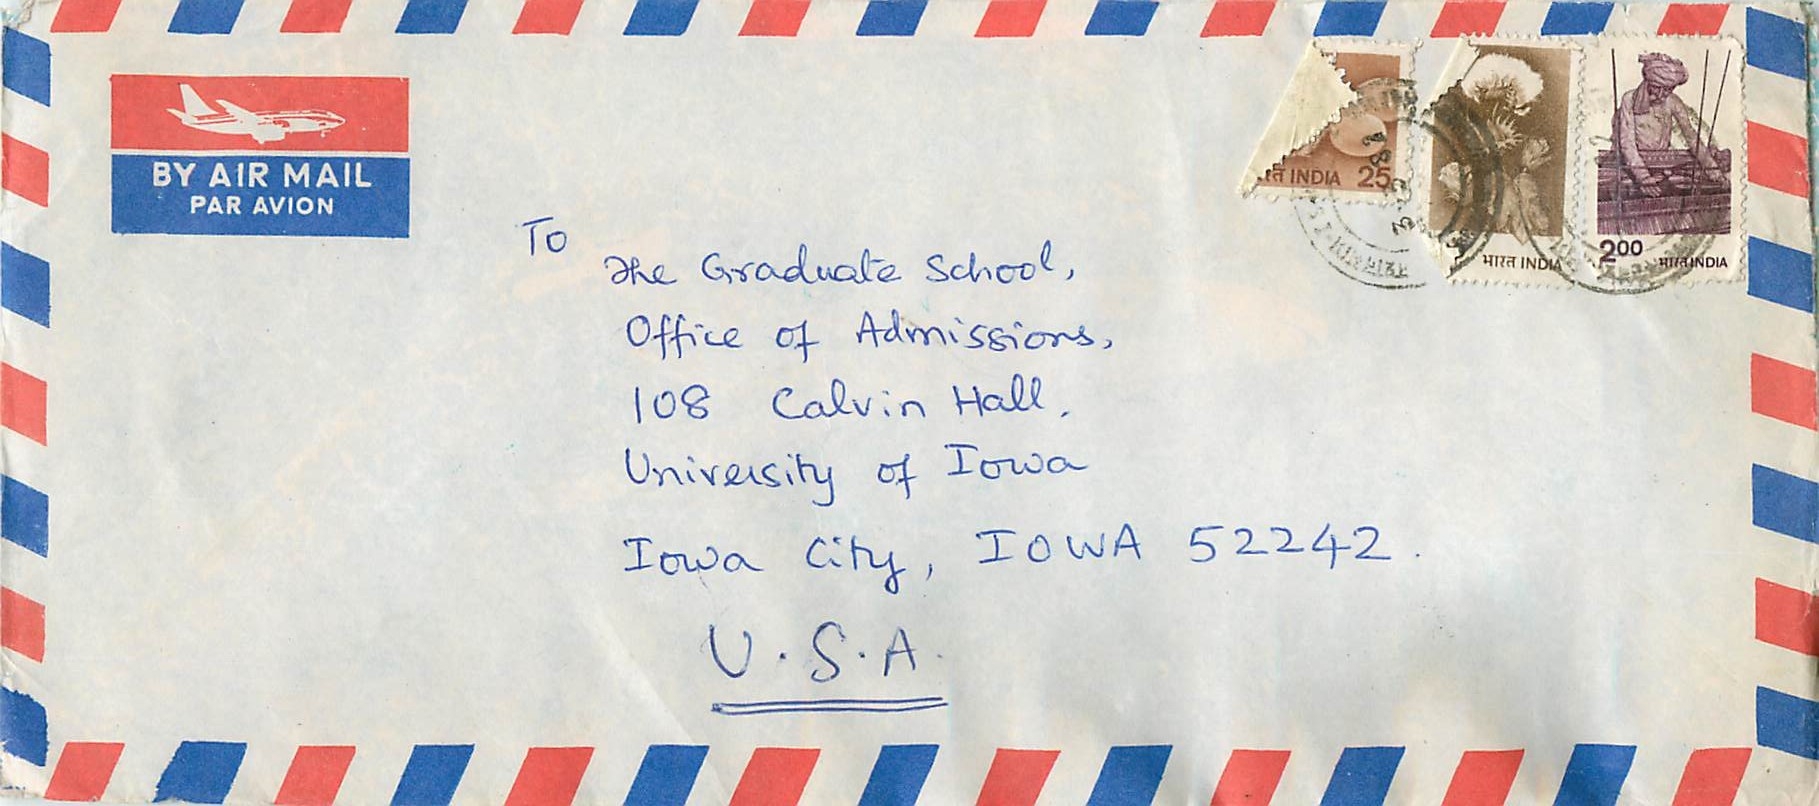 BY AIR MAIL
PAR AVION
INDIA 25
भारत INDIA
2.00 भारत INDIA
To
The Graduate School,
Office of Admissions,
108 Calvin Hall,
University of Iowa
Iowa City, IOWA 52242.
U.S.A.